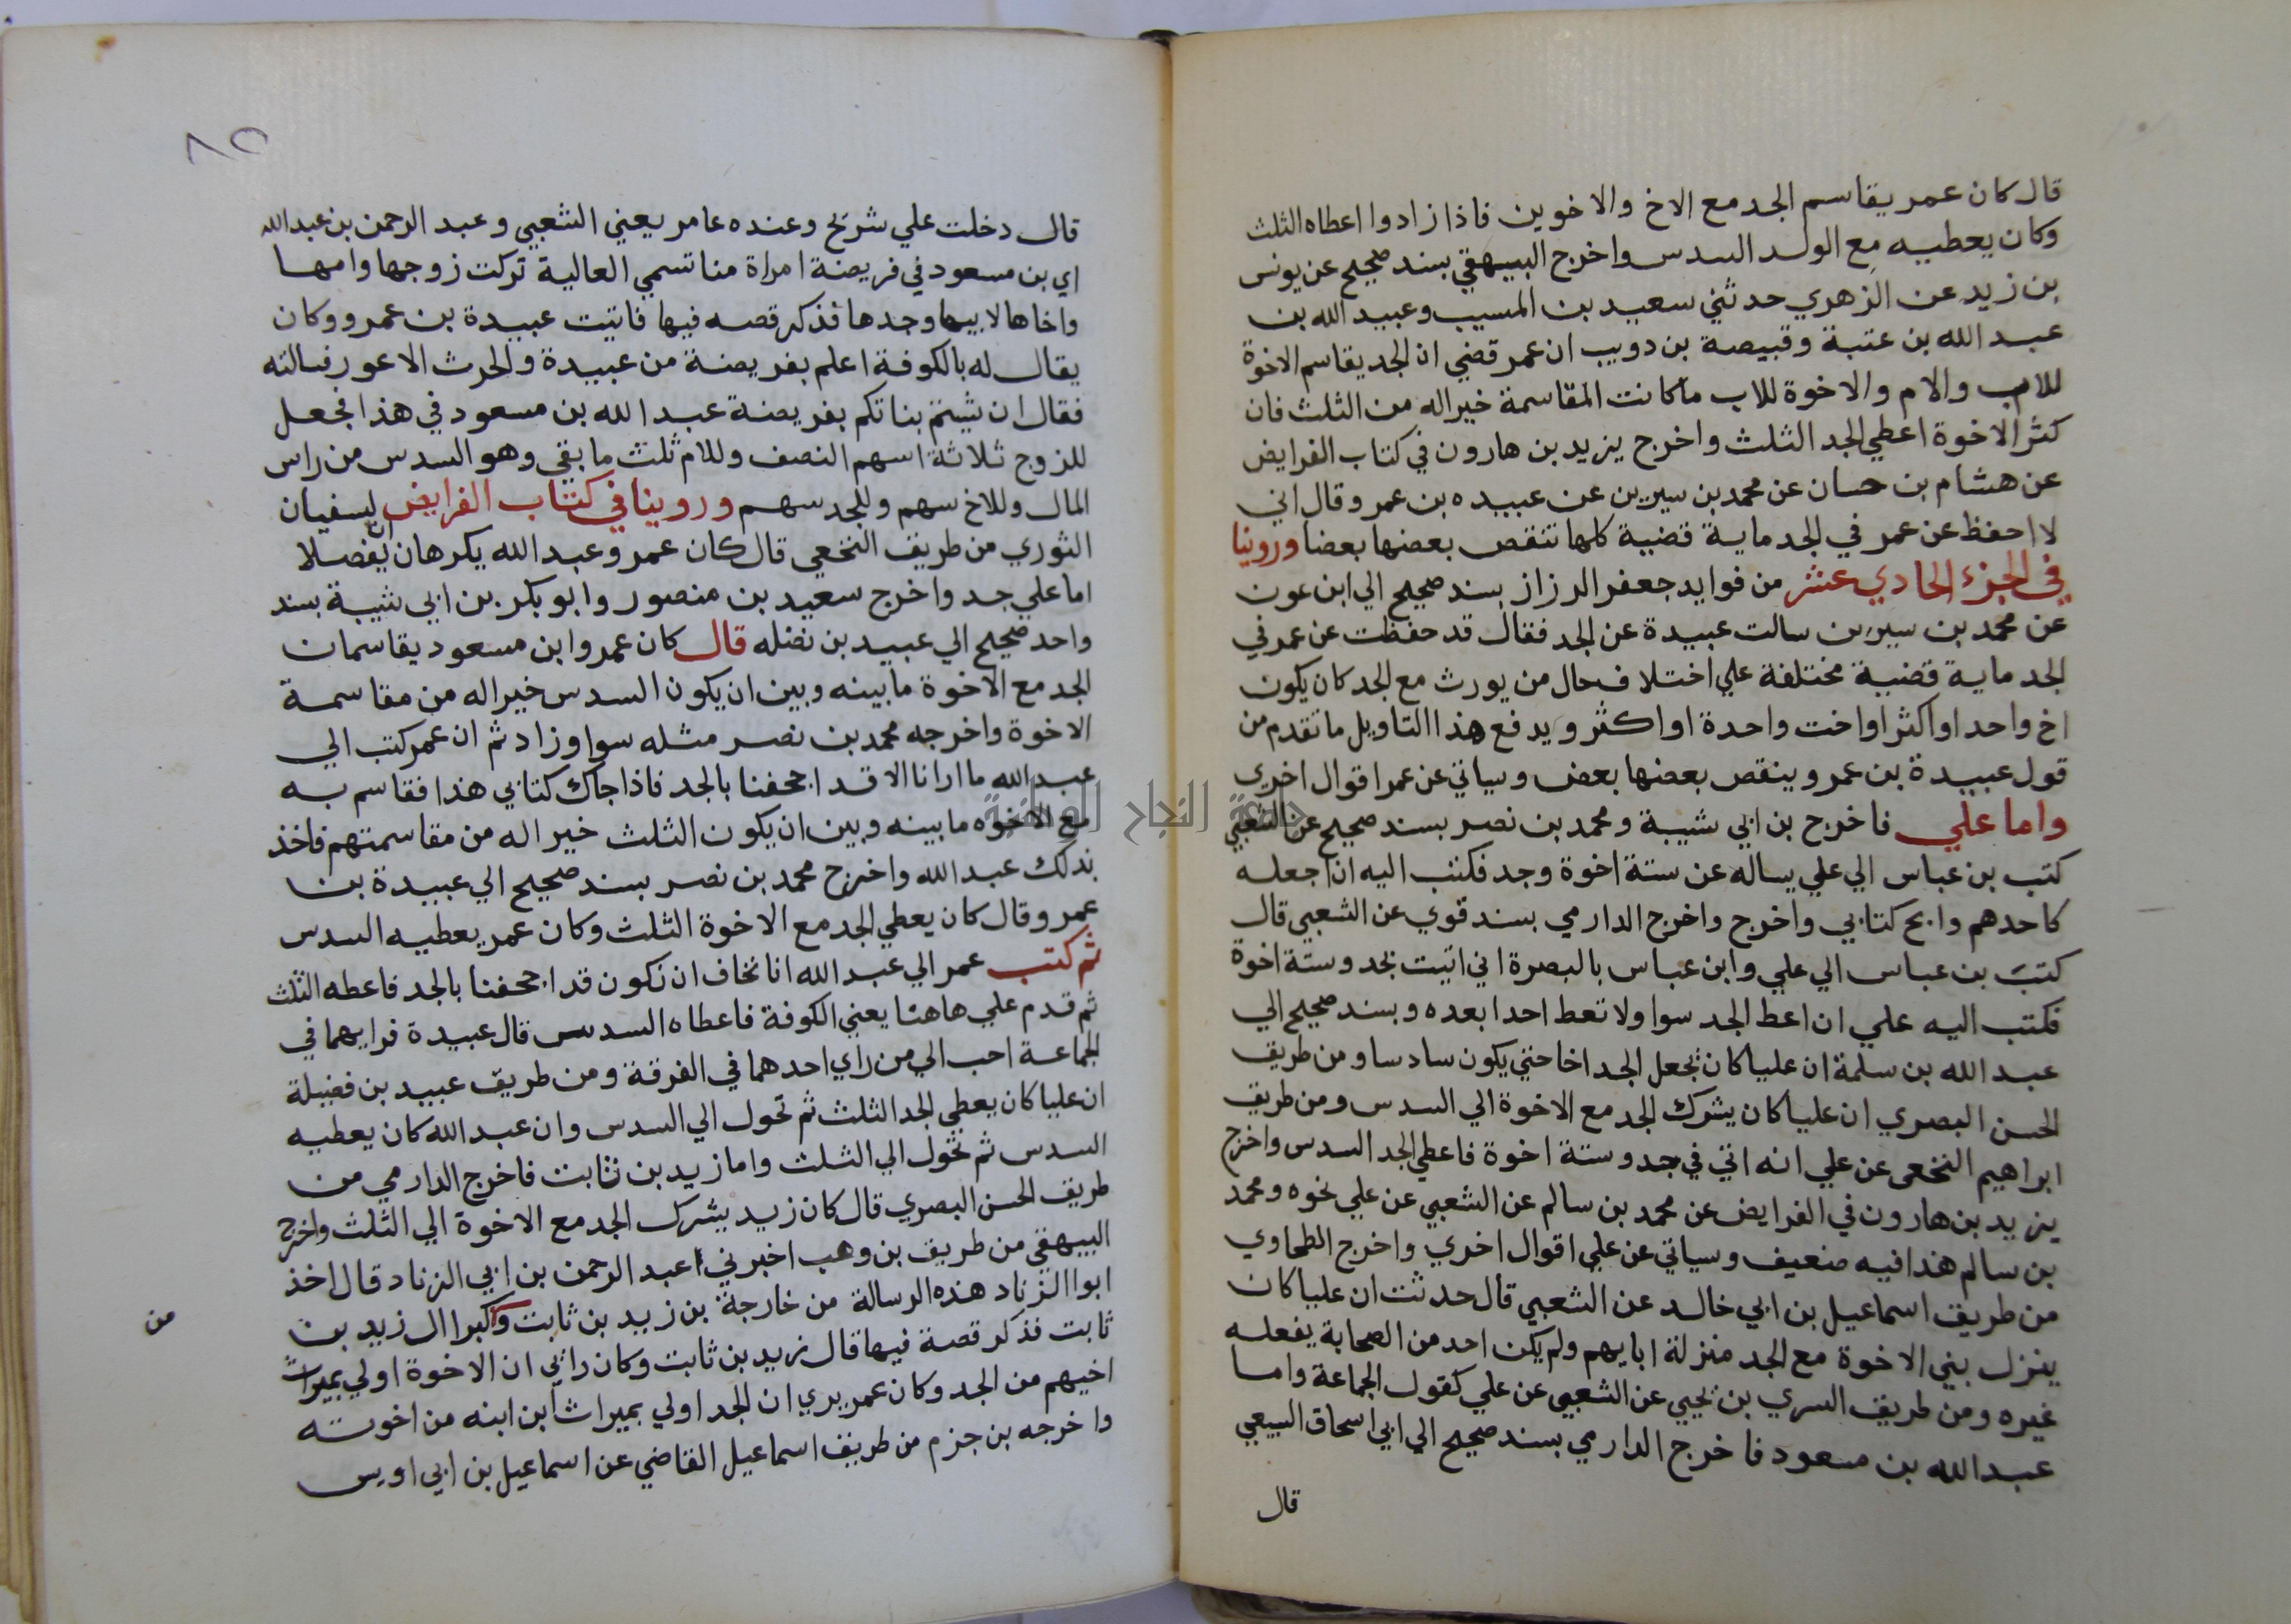 قال كان عمر يقاسم الجد مع الاخ والاخوين فاذا زادوا اعطاه الثلث
وكان يعطيه مع الولد السدس واخرج البيهقي بسند صحيح عن يونس
بن زيد عن الزهري حدثني سعيد بن المسيب وعبيد الله بن
عبد الله بن عتبة وقبيصة بن دويب ان عمر قضي ان الجد يقاسم الاخوة
للاب والام والاخوة للاب ما كانت المقاسمة خيرا له من الثلث فان
كثر الاخوة اعطي الجد الثلث واخرج يزيد بن هارون في كتاب الفرايض
عن هشام بن حسان عن محمد بن سيرين عن عبيده بن عمر وقال اني
لا احفظ عن عمر في الجد ماية قضية كلها تنقص بعضها بعضا وروينا
في الجزء الحادي عشر من فوايد جعفر الرزاز بسند صحيح الي ابن عون
عن محمد بن سيرين سالت عبيدة عن الجد فقال قد حفظت عن عمر في
الجد ماية قضية مختلفة علي اختلاف حال من يورث مع الجد كان يكون
اخ واحد او اكثر او اخت واحدة او اكثر ويدفع هذا التاويل ما تقدم من
قول عبيدة بن عمر وينقص بعضها بعض وسياتي عن عمر اقوال اخري
واما علي فاخرج بن ابي شيبة ومحمد بن نصر بسند صحيح عن الشعبي
كتب بن عباس الي علي يساله عن ستة اخوة وجد فكتب اليه ان اجعله
كاحدهم وامح كتابي واخرج واخرج الدارمي بسند قوي عن الشعبي قال
كتب بن عباس الي علي وابن عباس بالبصرة اني اتيت بجد وستة اخوة
فكتب اليه علي ان اعط الجد سوا ولا تعط احدا بعده وبسند صحيح الي
عبد الله بن سلمة ان عليا كان يجعل الجد اخا حتي يكون سادسا ومن طريق
الحسن البصري ان عليا كان يشرك الجد مع الاخوة الي السدس ومن طريق
ابراهيم النخعي عن علي انه اتي في جد وستة اخوة فاعطي الجد السدس واخرج
يزيد بن هارون في الفرايض عن محمد بن سالم عن الشعبي عن علي نحوه ومحمد
بن سالم هذا فيه ضعيف وسياتي عن علي اقوال اخري واخرج الطحاوي
من طريق اسماعيل بن ابي خالد عن الشعبي قال حدثت ان عليا كان
ينزل بني الاخوة مع الجد منزلة ابايهم ولم يكن احد من الصحابة يفعله
غيره ومن طريق السري بن يحيي عن الشعبي عن علي كقول الجماعة واما
عبد الله بن مسعود فاخرج الدارمي بسند صحيح الي ابي اسحاق السبيعي
قال
٨٥
قال دخلت علي شريح وعنده عامر يعني الشعبي وعبد الرحمن بن عبد الله
اي بن مسعود في فريضة امراة منا تسمي العالية تركت زوجها وامها
واخاها لابيها وجدها فذكر قصه فيها فاتيت عبيدة بن عمرو وكان
يقال له بالكوفة اعلم بفريضة من عبيدة والحرث الاعور فسالته
فقال ان شيتم بناتكم بفريضة عبد الله بن مسعود في هذا فجعل
للزوج ثلاثة اسهم النصف وللام ثلث ما بقي وهو السدس من راس
المال وللاخ سهم وللجد سهم وروينا في كتاب الفرايض لسفيان
الثوري من طريق النخعي قال كان عمر وعبد الله يكرهان ان يفضلا
اما علي جد واخرج سعيد بن منصور وابو بكر بن ابي شيبة بسند
واحد صحيح الي عبيد بن نضله قال كان عمر وابن مسعود يقاسمان
الجد مع الاخوة ما بينه وبين ان يكون السدس خيرا له من مقاسمة
الاخوة واخرجه محمد بن نصر مثله سوا وزاد ثم ان عمر كتب الي
عبد الله ما ارانا الا قد اجحفنا بالجد فاذا جاك كتابي هذا فقاسم به
مع الاخوه ما بينه وبين ان يكون الثلث خيرا له من مقاسمتهم فاخذ
بذلك عبد الله واخرج محمد بن نصر بسند صحيح الي عبيدة بن
عمر وقال كان يعطي الجد مع الاخوة الثلث وكان عمر يعطيه السدس
ثم كتب عمر الي عبد الله انا نخاف ان نكون قد اجحفنا بالجد فاعطه الثلث
ثم قدم علي هاهنا يعني الكوفة فاعطاه السدس قال عبيدة فرايهما في
الجماعة احب الي من راي احدهما في الفرقة ومن طريق عبيد بن فضيلة
ان عليا كان يعطي الجد الثلث ثم تحول الي السدس وان عبد الله كان يعطيه
السدس ثم تحول الي الثلث واما زيد بن ثابت فاخرج الدارمي من
طريق الحسن البصري قال كان زيد يشرك الجد مع الاخوة الي الثلث واخرج
البيهقي من طريق بن وهب اخبرني عبد الرحمن بن ابي الزناد قال اخذ
ابوا الزناد هذه الرسالة من خارجة بن زيد بن ثابت وكبرا ال زيد بن
ثابت فذكر قصة فيها قال زيد بن ثابت وكان رايي ان الاخوة اولي بميراث
اخيهم من الجد وكان عمر يري ان الجد اولي بميراث ابن ابنه من اخوته
واخرجه بن حزم من طريق اسماعيل القاضي عن اسماعيل بن ابي اويس
من
جامعة النجاح الوطنية